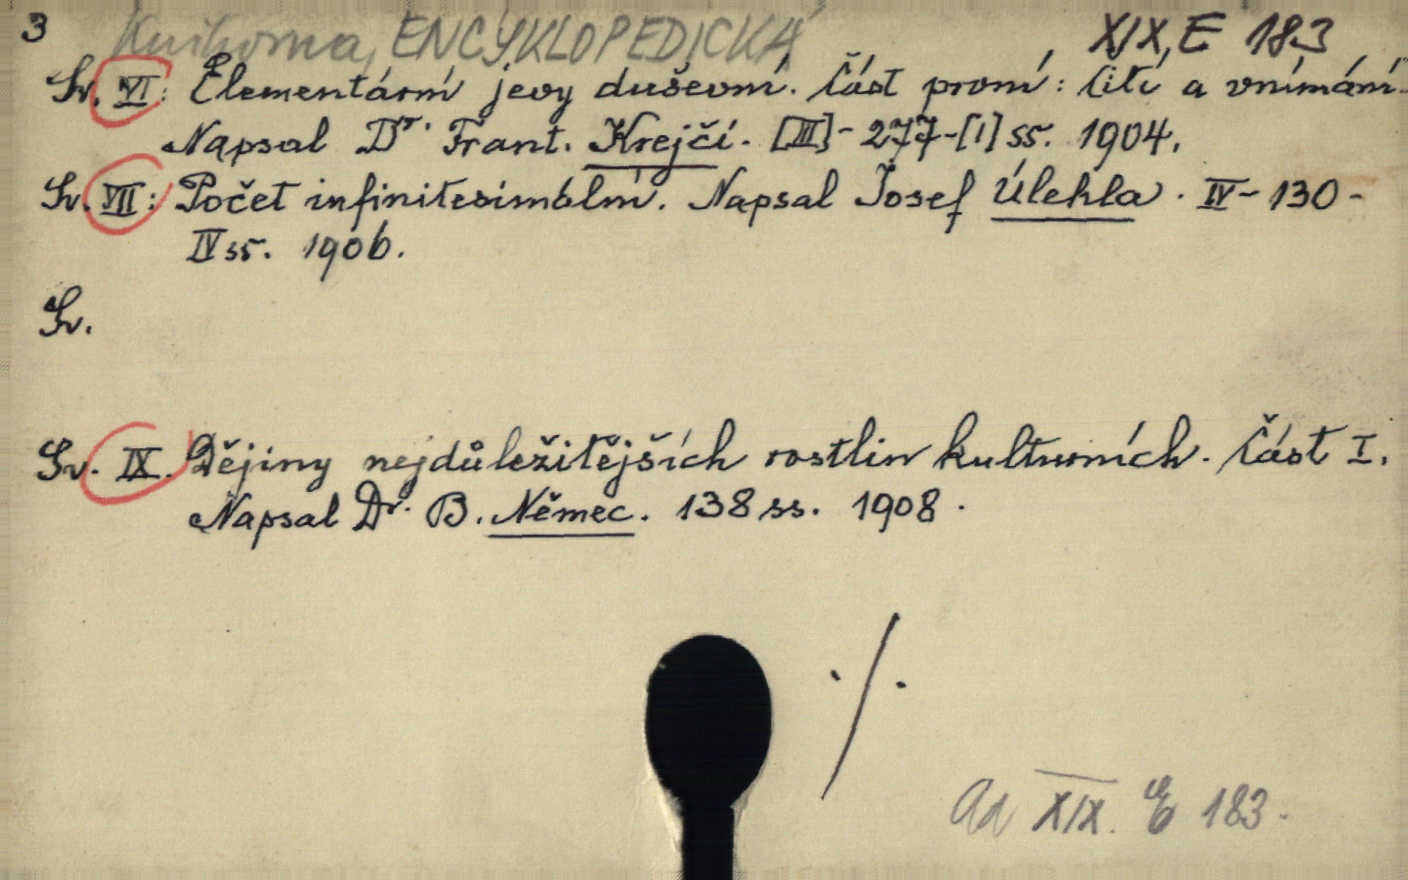 3 Knihovna, ENCYKLOPEDICKÁ XIX, E 183
Sv. VI: Elementární jevy duševní. Část první: Cití a vnímání.
Napsal Dr. Frant. Krejčí. [III]-277-[1] ss. 1904.
Sv. VII: Počet infinitesimální. Napsal Josef Úlehla. IV-130-
IV ss. 1906.
Sv.
Sv. IX. Dějiny nejdůležitějších rostlin kulturních. Část I.
Napsal Dr. B. Němec. 138 ss. 1908.
./.
Ad XIX. E 183.